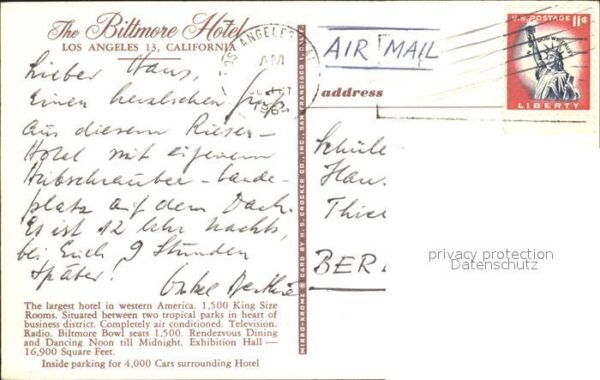 The Biltmore Hotel
LOS ANGELES 13, CALIFORNIA
Lieber Hans,
Einen herzlichen Gruß
aus diesem Riesen-
Hotel mit eigenem
Hubschrauber-Lande-
platz auf dem Dach.
Es ist 12 Uhr nachts,
bei Euch 9 Stunden
später!
Onkel
The largest hotel in western America. 1,500 King Size
Rooms. Situated between two tropical parks in heart of
business district. Completely air conditioned. Television.
Radio. Biltmore Bowl seats 1,500. Rendezvous Dining
and Dancing Noon till Midnight. Exhibition Hall —
16,900 Square Feet.
Inside parking for 4,000 Cars surrounding Hotel
MIRRO-KROME ® CARD BY H. S. CROCKER CO., INC., SAN FRANCISCO 1, CALIF.
LOS ANGELES
AM
AIR MAIL
U.S. POSTAGE 11¢
IN GOD WE TRUST
LIBERTY
address
Schüle
Han
Thie
BER
privacy protection
Datenschutz